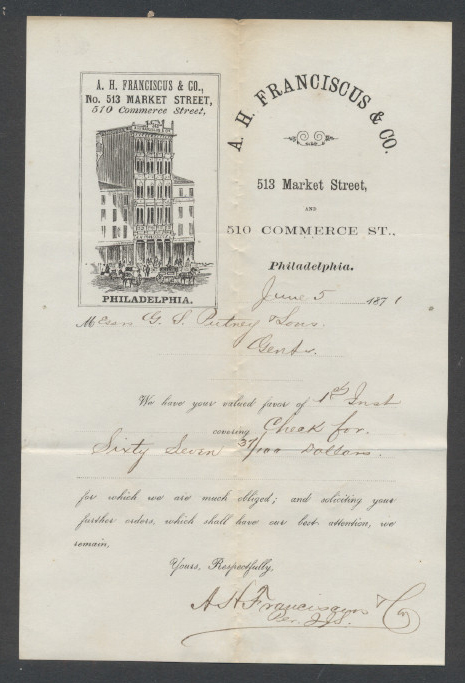 A. H. FRANCISCUS & CO.,
No. 513 MARKET STREET,
510 Commerce Street,
PHILADELPHIA.
A. H. FRANCISCUS & CO.
513 Market Street,
AND
510 COMMERCE ST.,
Philadelphia.
June 5 1871
Messrs G. S. Putney & Sons.
Gents.
We have your valued favor of 1st Inst
covering Check for.
Sixty Seven 37/100 Dollars.
for which we are much obliged; and soliciting your
further orders, which shall have our best attention, we
remain,
Yours, Respectfully,
A H Franciscus & Co
Per.